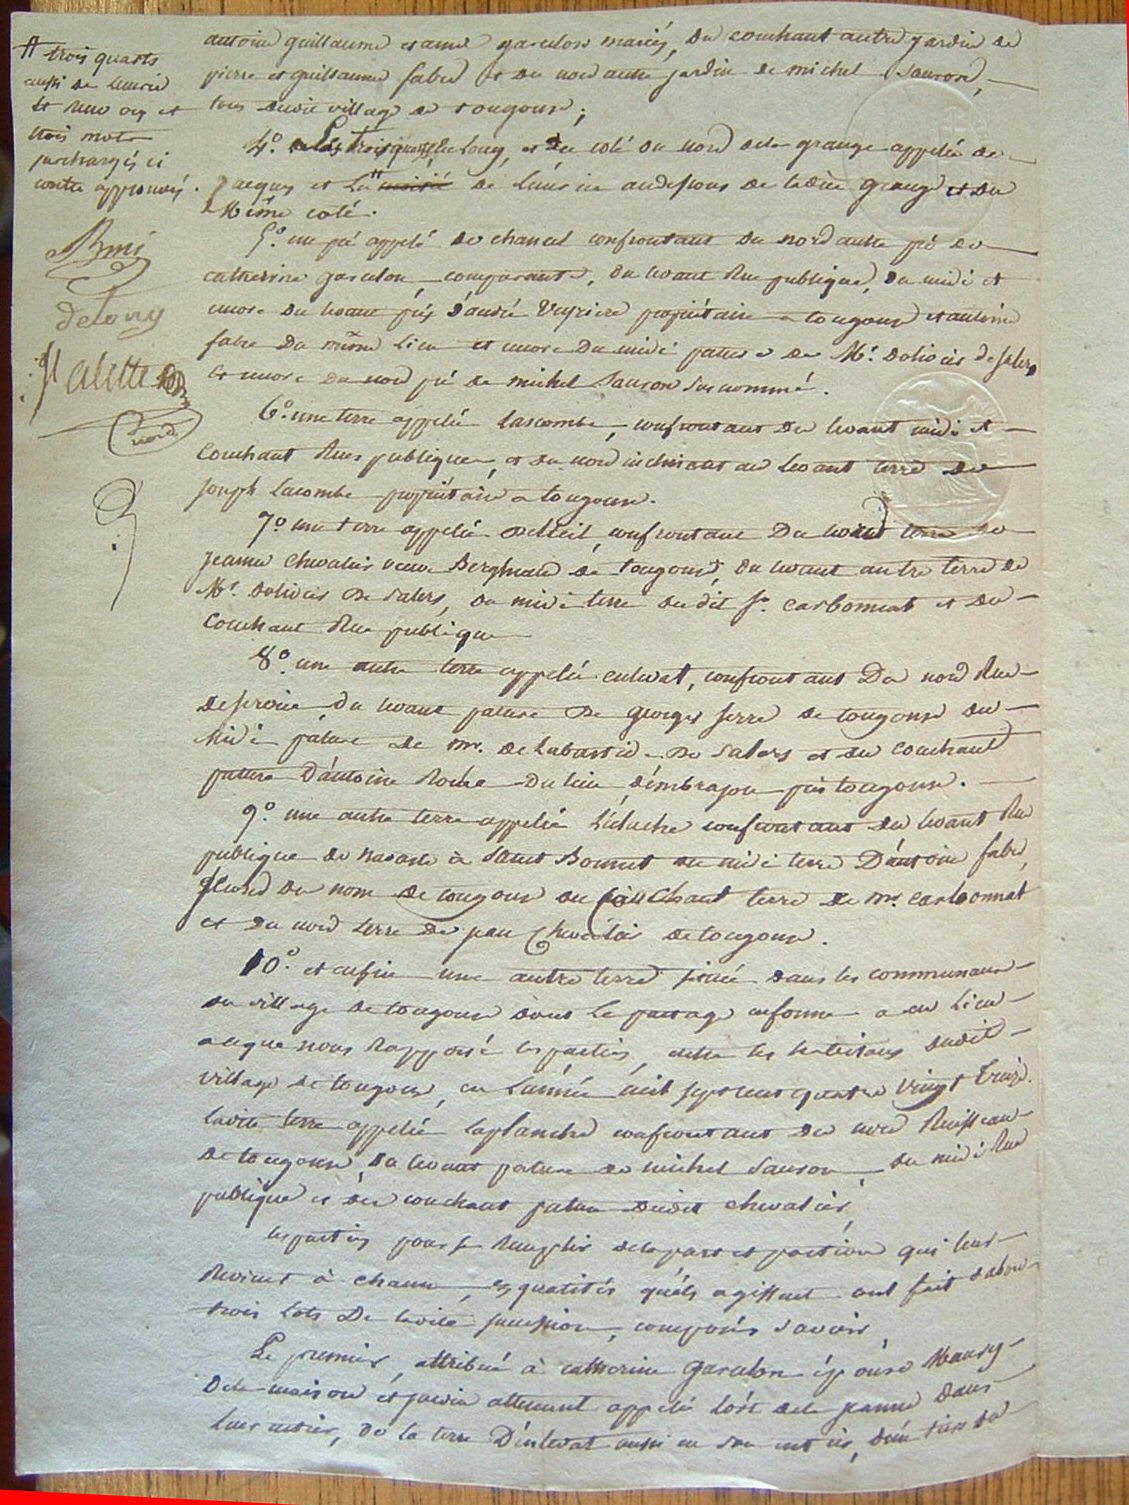 # trois quarts
aussi de l'eurié
et
trois mots
surchargés ci
contre approuvés.
delong
Valette
antoine guillaume et anne garculon mariés, du couchant autre jardin de
pierre et guillaume fabre et du nord autre jardin de michel Sauron,
tous dudit village de tougouse;
4° Les trois quarts du Couq, et du coté du nord de la grange appelée de
jacques et la # moitié de l'eurie au dessous de ladite grange et du
même coté.
5° un pré appelé de chancel confrontant du nord autre pré de
catherine garculon comparante, du levant Rue publique, du midi et
encore du levant prés d'andré Veyriere propriétaire a tougouse et antoine
fabre du même lieu et encore du midi pature de Mr. dolivier de Salers
et encore du nord pré de michel Sauron susnommé.
6° une terre appelée Lascombe, confrontant du levant midi et
Couchant Rues publiques, et du nord inclinant au levant terre de
joseph Lacombe propriétaire a tougouse.
7° une terre appelée Delteil, confrontant Du nord terre de
jeanne chevalier veuve Bergheaud de tougouse, du levant autre terre de
Mr. dolivier de Salers, du midi terre du dit Sr. carbonnat et du
Couchant Rue publique
8° une autre terre appelée enlevat, confrontant Du nord Rue
deservie, du levant pature de georges serre de tougouse du
Midi pature de mr. de Labastide de Salers et du Couchant
pature D'antoine Roche du lieu d'embrajou près tougouse.
9° une autre terre appelée confrontant du levant Rue
publique de navaste à Saint Bonnet du midi terre D'antoine fabre,
second du nom de tougouse du Couchant terre de mr. carbonnat
et du nord terre de jean Chevalier de tougouse.
10° et enfin une autre terre située dans les communaux
du village de tougouse dont le partage enforme a eu lieu
a ce que nous Rapporté les parties, entre les habitans dudit
village de tougouse, en l'année mil sept cent quatre vingt treize.
ladite terre appelée laplanche confrontant du nord Ruisseau
de tougouse, du levant pature de michel Sauron, du midi Rue
publique et du couchant pature dudit chevalier,
les parties pour se Remplir de la part et portion qui leur
Revient à chacune, es qualités qu'els agissent ont fait d'abord
trois Lots De ladite succession, composés savoir,
Le premier, attribué à catherine garculon épouse Maury
De la maison et jardin attenant appelé l'ort de la jeanne dans
leur entier, de la terre D'enlevat aussi en son entier, d'un tiers de